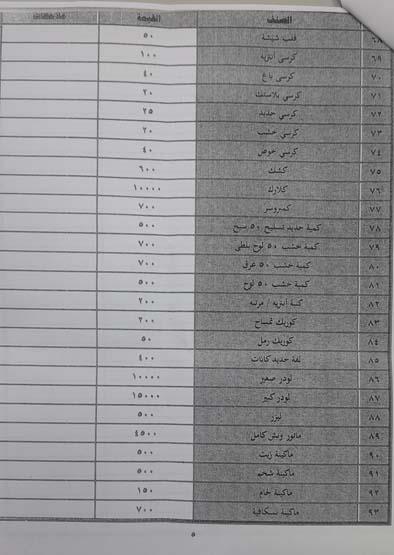 الصنف القيمة ملاحظات
٦٨ قفص شيشة ٥٠
٦٩ كرسى انتريه ١٠٠
٧٠ كرسى باغ ٤٠
٧١ كرسى بلاستك ٢٠
٧٢ كرسي حديد ٢٥
٧٣ كرسي خشب ٢٠
٧٤ كرسي خوص ٤٠
٧٥ كشك ٦٠٠
٧٦ كلارك ١٠٠٠٠
٧٧ كمبروسر ٧٠٠
٧٨ كمية حديد تسليح ٥٠ سيخ ٥٠٠
٧٩ كمية خشب ٥٠ لوح بلطى ٧٠٠
٨٠ كمية خشب ٥٠ عرق ٧٠٠
٨١ كمية خشب ٥٠ لوح ٥٠٠
٨٢ كنبة انتريه / مرتبه ٢٠٠
٨٣ كوريك تمساح ٢٠٠
٨٤ كوريك رمل ٥٠
٨٥ لفة حديد كانات ٤٠٠
٨٦ لودر صغير ١٠٠٠٠
٨٧ لودر كبير ١٥٠٠٠
٨٨ ليزر ٥٠٠
٨٩ ماتور ونش كامل ٤٥٠٠
٩٠ ماكينة زيت ٥٠٠
٩١ ماكينة شحم ٥٠٠
٩٢ ماكينة لحام ١٥٠
٩٣ ماكينة نسكافية ٧٠٠
٥